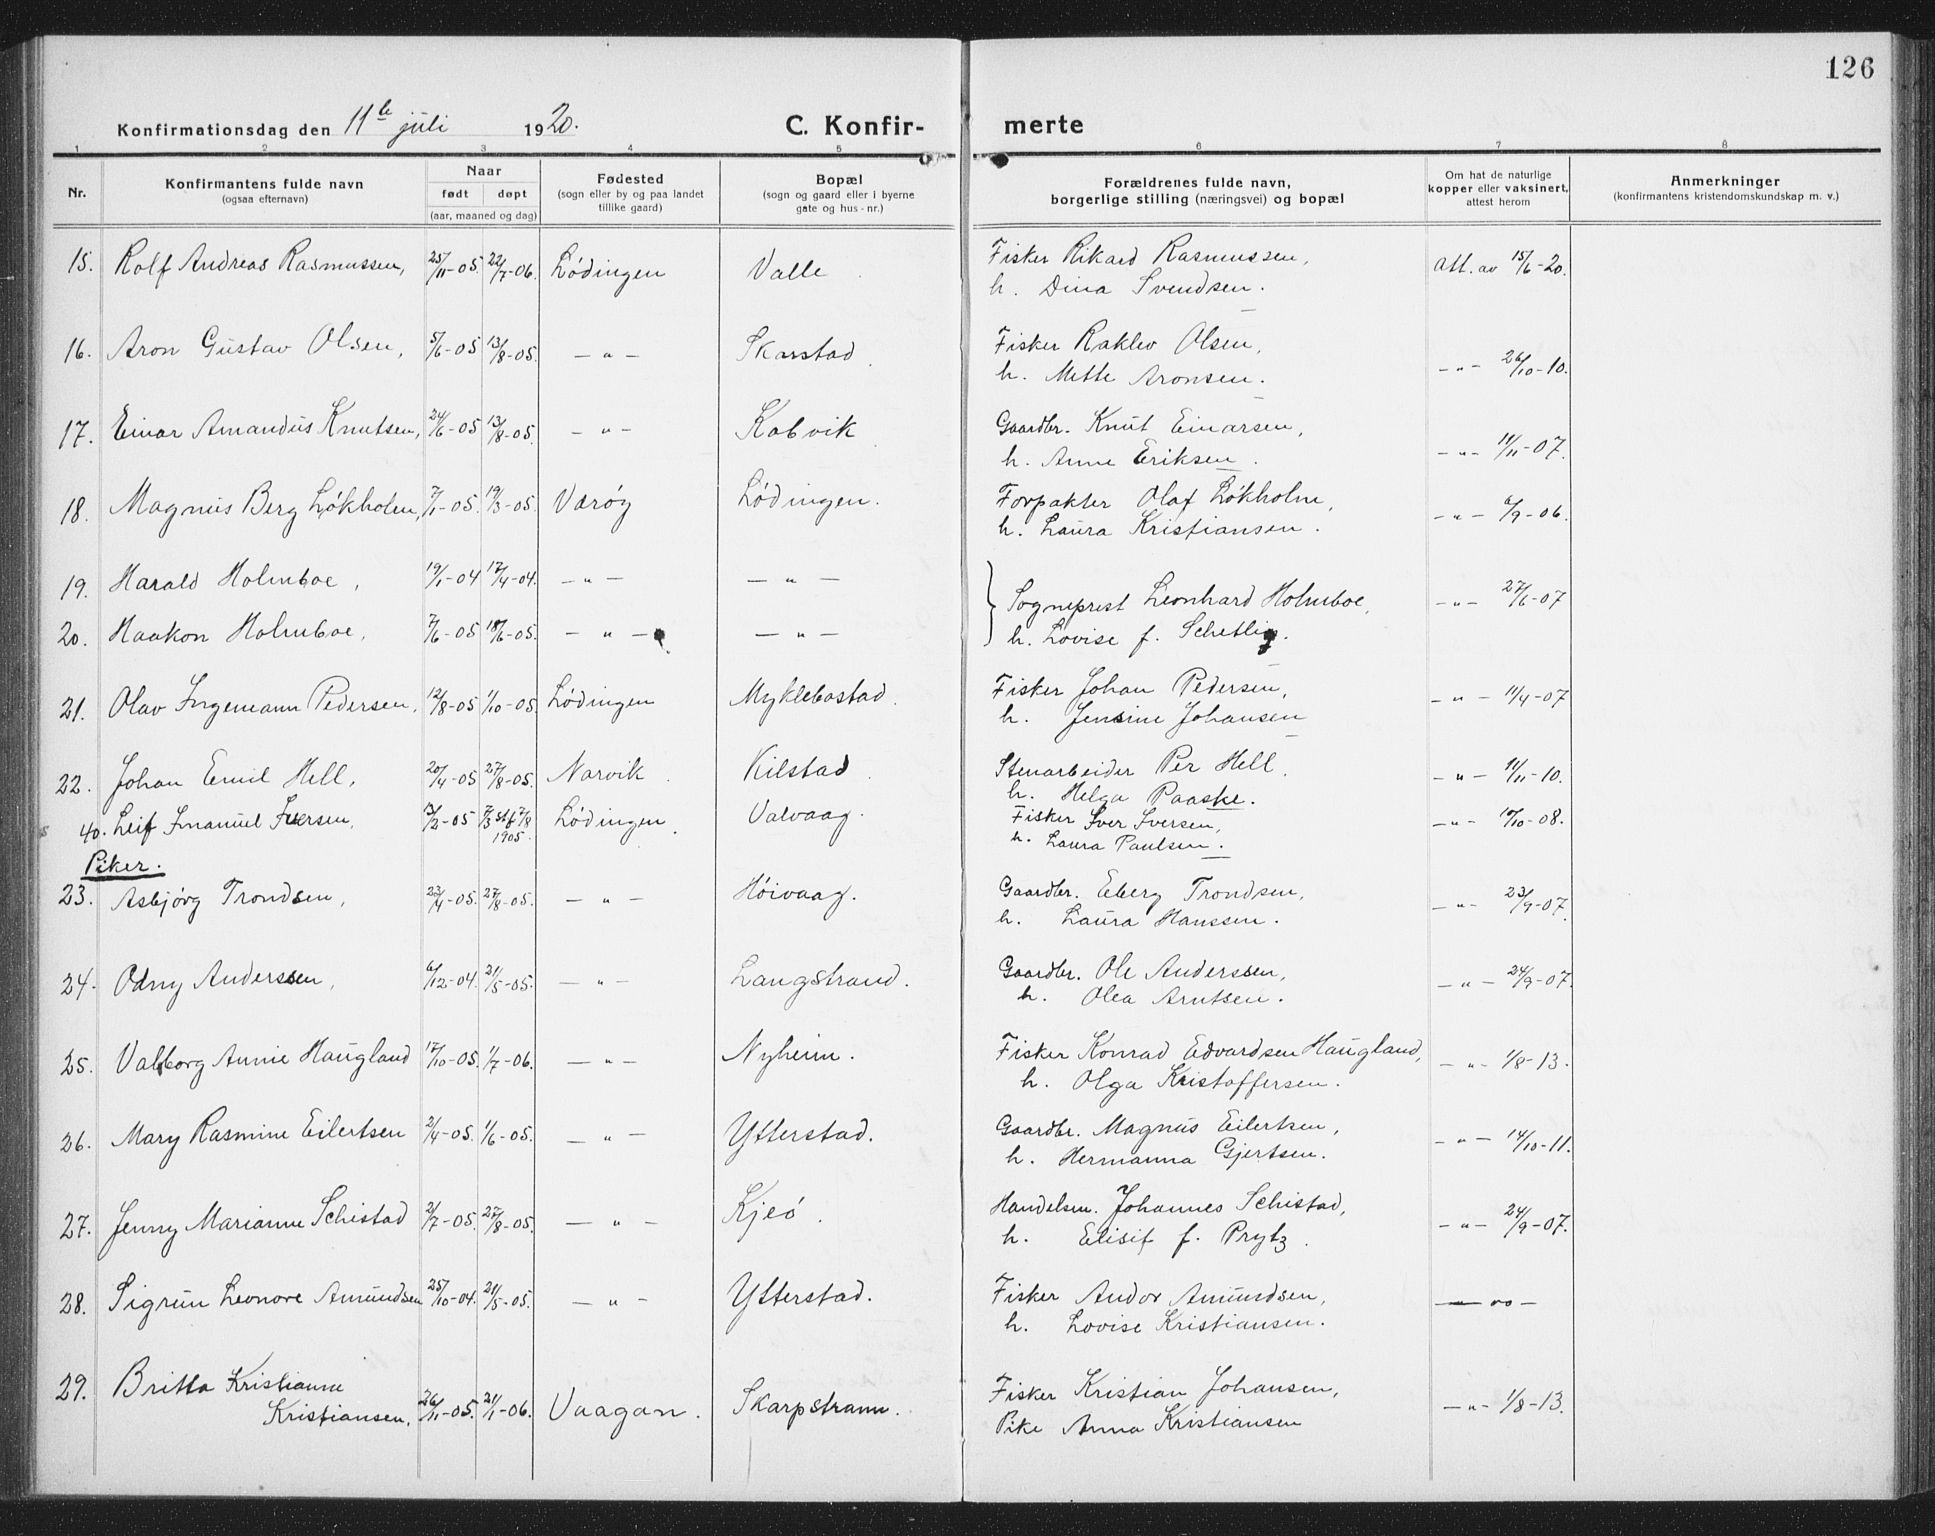 126
Konfirmationsdag den 11te juli 1920.
C. Konfir- merte
1 2 3 4 5 6 7 8
Nr.
Konfirmantens fulde navn
(ogsaa efternavn)
Naar
født døpt
(aar, maaned og dag)
Fødested
(sogn eller by og paa landet
tillike gaard)
Bopæl
(sogn og gaard eller i byerne
gate og hus-nr.)
Forældrenes fulde navn,
borgerlige stilling (næringsvei) og bopæl
Om hat de naturlige
kopper eller vaksinert,
attest herom
Anmerkninger
(konfirmantens kristendomskundskap m. v.)
15. Rolf Andreas Rasmussen, 25/11-05. 22/7-06. Lódingen Valle Fisker Rikard Rasmussen, Att. av 15/6-20.
h. Dina Svendsen.
16. Aron Gustav Olsen, 5/6-05 13/8-05. — " — Skarstad. Fisker Raklev Olsen, — " — 26/10-10.
h. Mette Aronsen.
17. Einar Amandus Knutsen, 24/6-05 13/8-05. — " — Kobvik Gaardbr. Knut Einarsen, — " — 11/11-07.
h. Anne Eriksen.
18. Magnus Berg Lókholm, 7/1-05. 19/3-05. Væróy Lódingen. Forpakter Olaf Lókholm, — " — 6/9-06.
h. Laura Kristiansen.
19. Harald Holmboe, 19/1-04 17/4-04. — " — — " — Sogneprest Leonhard Holmboe, — " — 27/6-07
20. Haakon Holmboe, 7/6-05 18/6-05. — " — — " — h. Lovise f. Schetlig.
21. Olav Ingemann Pedersen, 12/8-05 1/10-05. Lódingen Myklebostad. Fisker Johan Pedersen, — " — 11/4-07
h. Jensine Johansen
22. Johan Emil Hell, 20/4-05 27/8-05. Narvik. Kilstad. Stenarbeider Per Hell, — " — 11/11-10.
h. Helga Paaske.
40. Leif Imanuel Iversen, 13/2-05 7/5 stf 7/8 1905. Lódingen. Valvaag. Fisker Iver Iversen, — " — /10-08.
h. Laura Paulsen.
Piker.
23. Asbjórg Trondsen, 23/4-05. 27/8-05. — " — Hóivaag. Gaardbr. Eberg Trondsen, — " — 23/9-07.
h. Laura Hanssen.
24. Odny Anderssen, 6/12-04. 21/5-05. — " — Langstrand. Gaardbr. Ole Anderssen, — " — 24/9-07.
h. Olea Arntsen.
25. Valborg Annie Haugland 17/10-05. 1/7-06. — " — Nyheim. Fisker Konrad Edvardsen Haugland, — " — 1/8-13.
h. Olga Kristoffersen.
26. Mary Rasmine Eilertsen 2/4-05. 1/6-05. — " — Ytterstad. Gaardbr. Magnus Eilertsen, — " — 14/10-11.
h. Hermanna Gjertsen.
27. Jenny Marianne Schistad 2/7-05. 27/8-05. — " — Kjeó. Handelsm. Johannes Schistad, — " — 24/9-07.
h. Elisif f. Prytz.
28. Sigrun Leonore Amundsen 25/10-04. 21/5-05. — " — Ytterstad. Fisker Andor Amundsen, — oo —
h. Lovise Kristiansen.
29. Britta Kristianne Fisker Kristian Johansen,
Kristiansen, 26/11-05. 21/1-06. Vaagan. Skarpstrann. Pike Anna Kristiansen — " — 1/8-13.